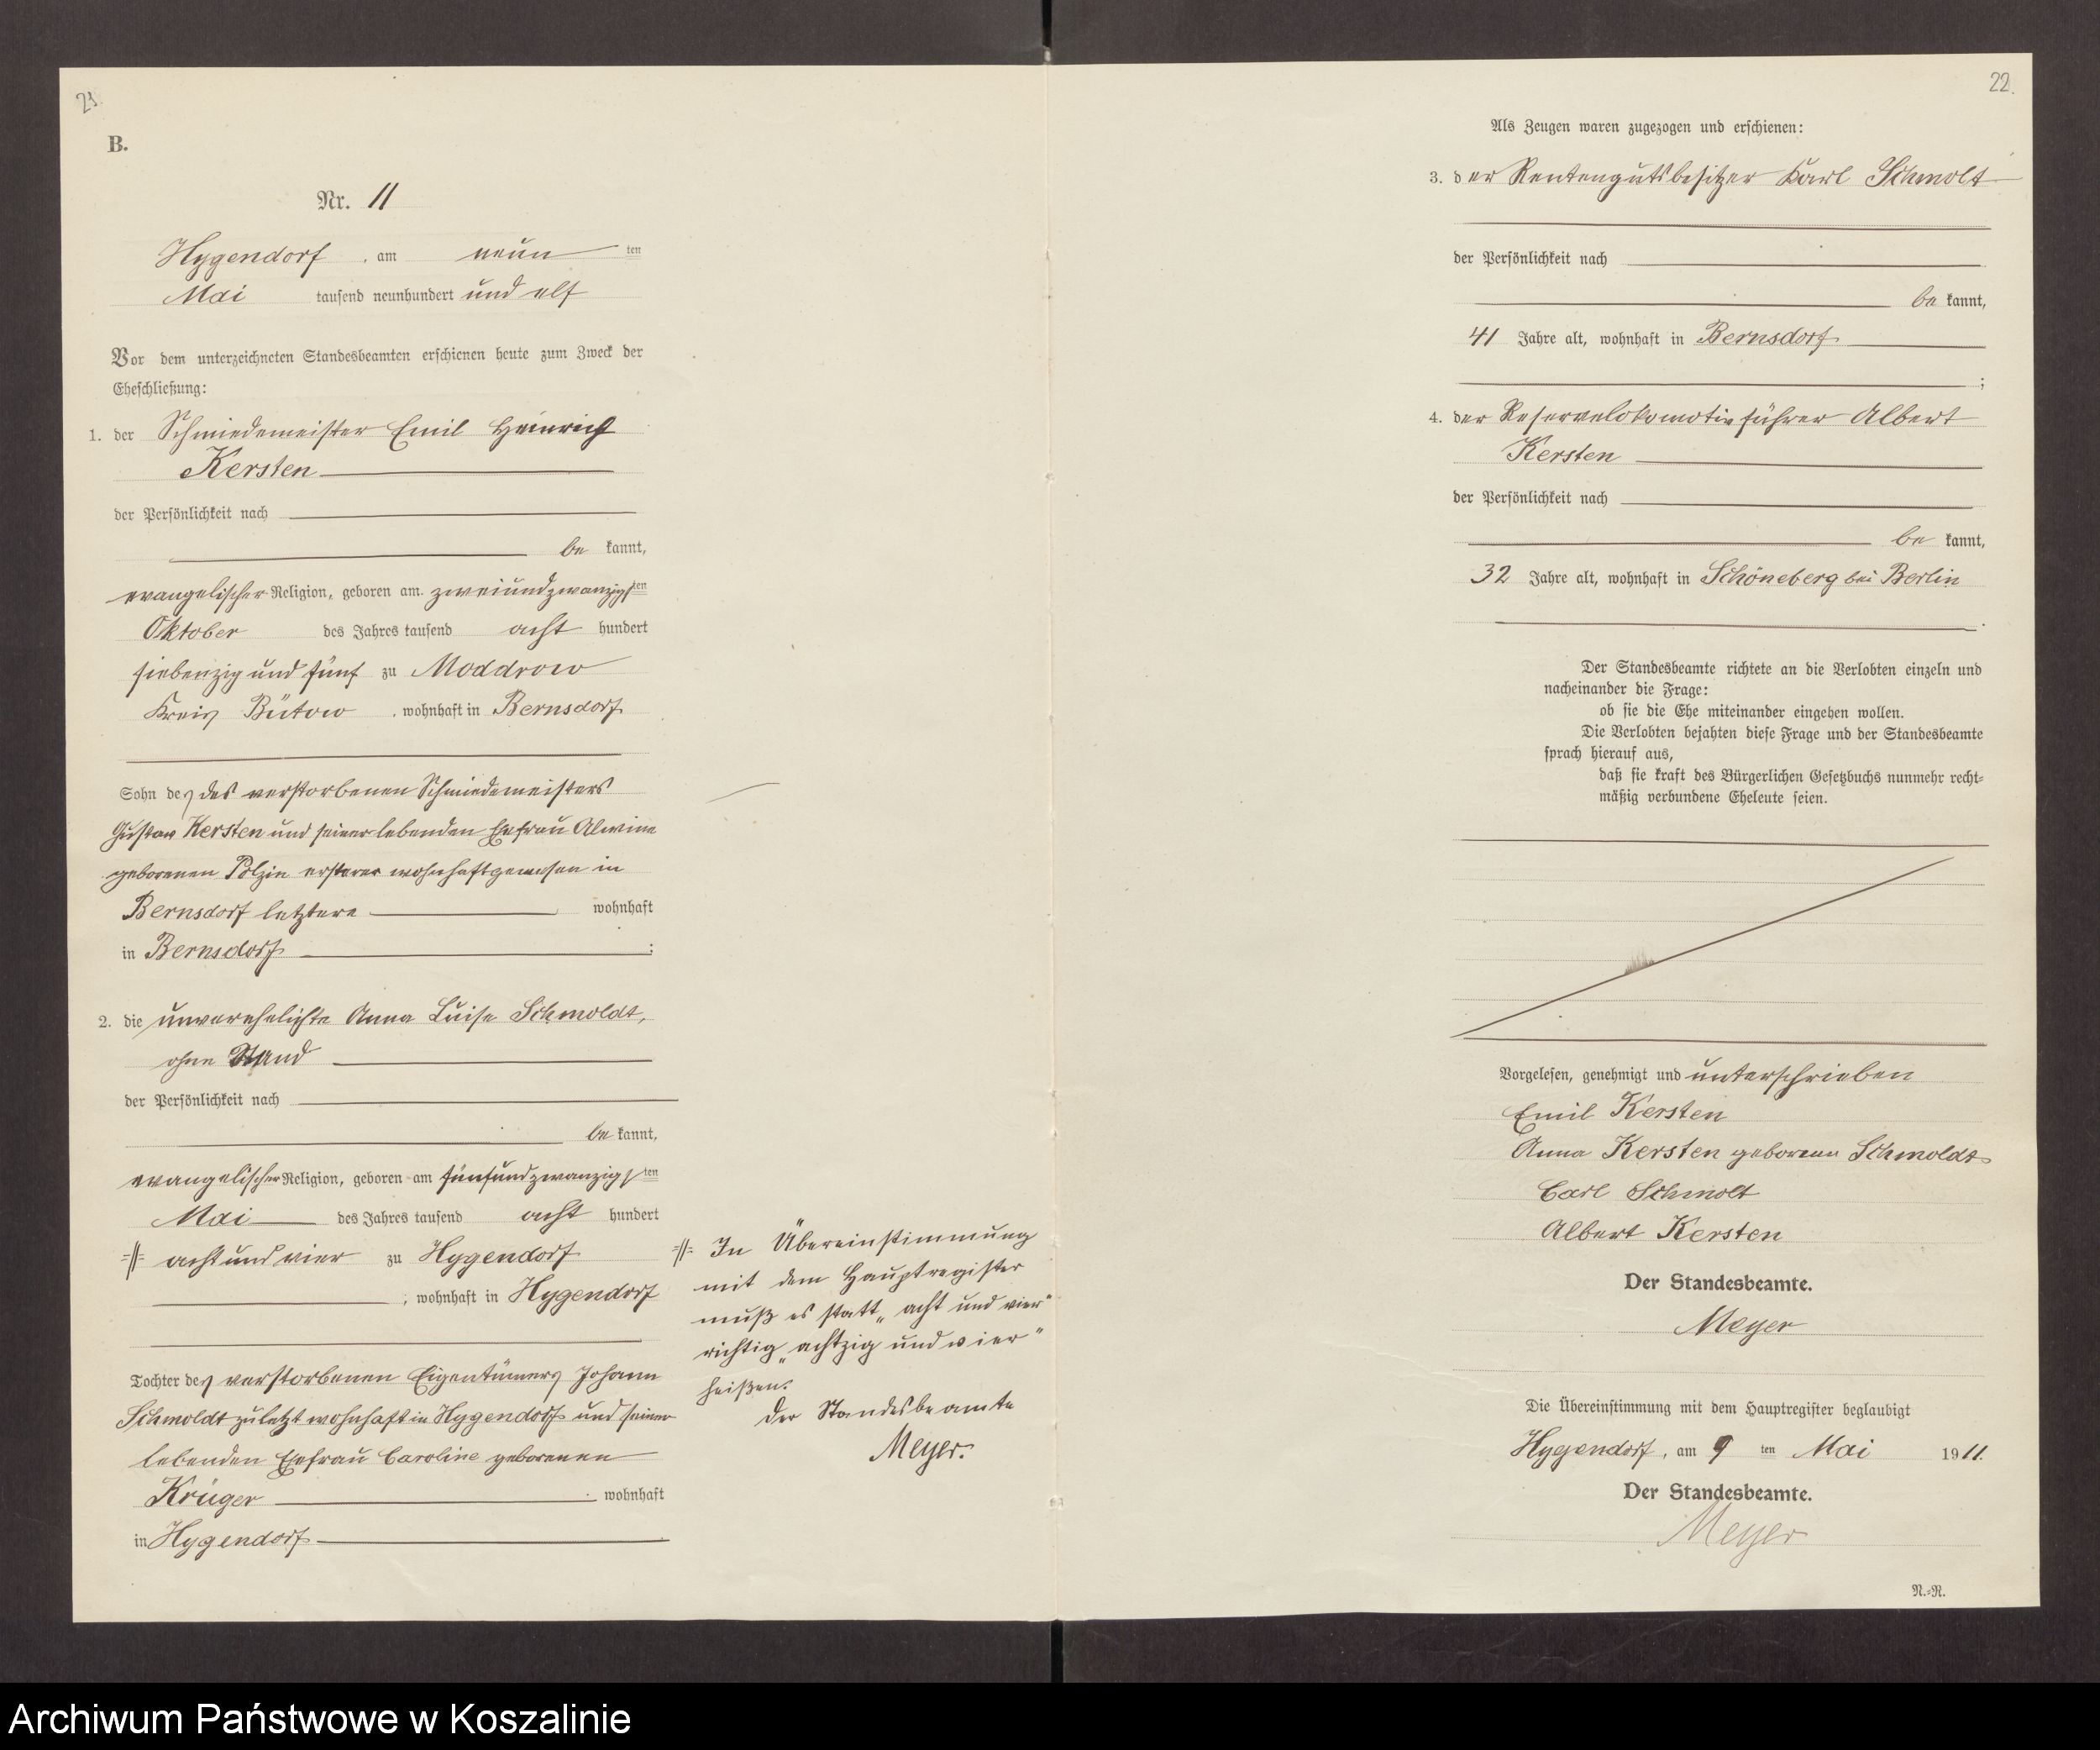 23.
B.
Nr. 11
Hygendorf, am neun ten
Mai tausend neunhundert und elf
Vor dem unterzeichneten Standesbeamten erschienen heute zum Zweck der
Eheschließung:
1. der Schmiedemeister Emil Heinrich
Kersten
der Persönlichkeit nach
be kannt,
evangelischer Religion, geboren am zweiundzwanzigsten
Oktober des Jahres tausend acht hundert
siebenzig und fünf zu Moddrow
Kreis Bütow, wohnhaft in Bernsdorf
Sohn des des verstorbenen Schmiedemeisters
Gustav Kersten und seiner lebenden Ehefrau Alwine
geborenen Polzin ersterer wohnhaft gewesen in
Bernsdorf letztere wohnhaft
in Bernsdorf;
2. die unverehelichte Anna Luise Schmoldt,
ohne Stand
der Persönlichkeit nach
be kannt,
evangelischer Religion, geboren am fünfundzwanzigsten
Mai des Jahres tausend acht hundert
=//= acht und vier zu Hygendorf
, wohnhaft in Hygendorf
Tochter des verstorbenen Eigentümers Johann
Schmoldt zuletzt wohnhaft in Hygendorf und seiner
lebenden Ehefrau Caroline geborenen
Krüger wohnhaft
in Hygendorf
=//= In Übereinstimmung
mit dem Hauptregister
muß es statt „acht und vier"
richtig „achtzig und vier"
heißen.
Der Standesbeamte
Meyer.
22.
Als Zeugen waren zugezogen und erschienen:
3. der Rentengutsbesitzer Karl Schmolt
der Persönlichkeit nach
be kannt,
41 Jahre alt, wohnhaft in Bernsdorf
;
4. der Reservelokomotivführer Albert
Kersten
der Persönlichkeit nach
be kannt,
32 Jahre alt, wohnhaft in Schöneberg bei Berlin
.
Der Standesbeamte richtete an die Verlobten einzeln und
nacheinander die Frage:
ob sie die Ehe miteinander eingehen wollen.
Die Verlobten bejahten diese Frage und der Standesbeamte
sprach hierauf aus,
daß sie kraft des Bürgerlichen Gesetzbuchs nunmehr recht-
mäßig verbundene Eheleute seien.
Vorgelesen, genehmigt und unterschrieben
Emil Kersten
Anna Kersten geborene Schmoldt
Carl Schmolt
Albert Kersten
Der Standesbeamte.
Meyer
Die Übereinstimmung mit dem Hauptregister beglaubigt
Hygendorf, am 9 ten Mai 1911.
Der Standesbeamte.
Meyer
N.-R.
Archiwum Państwowe w Koszalinie